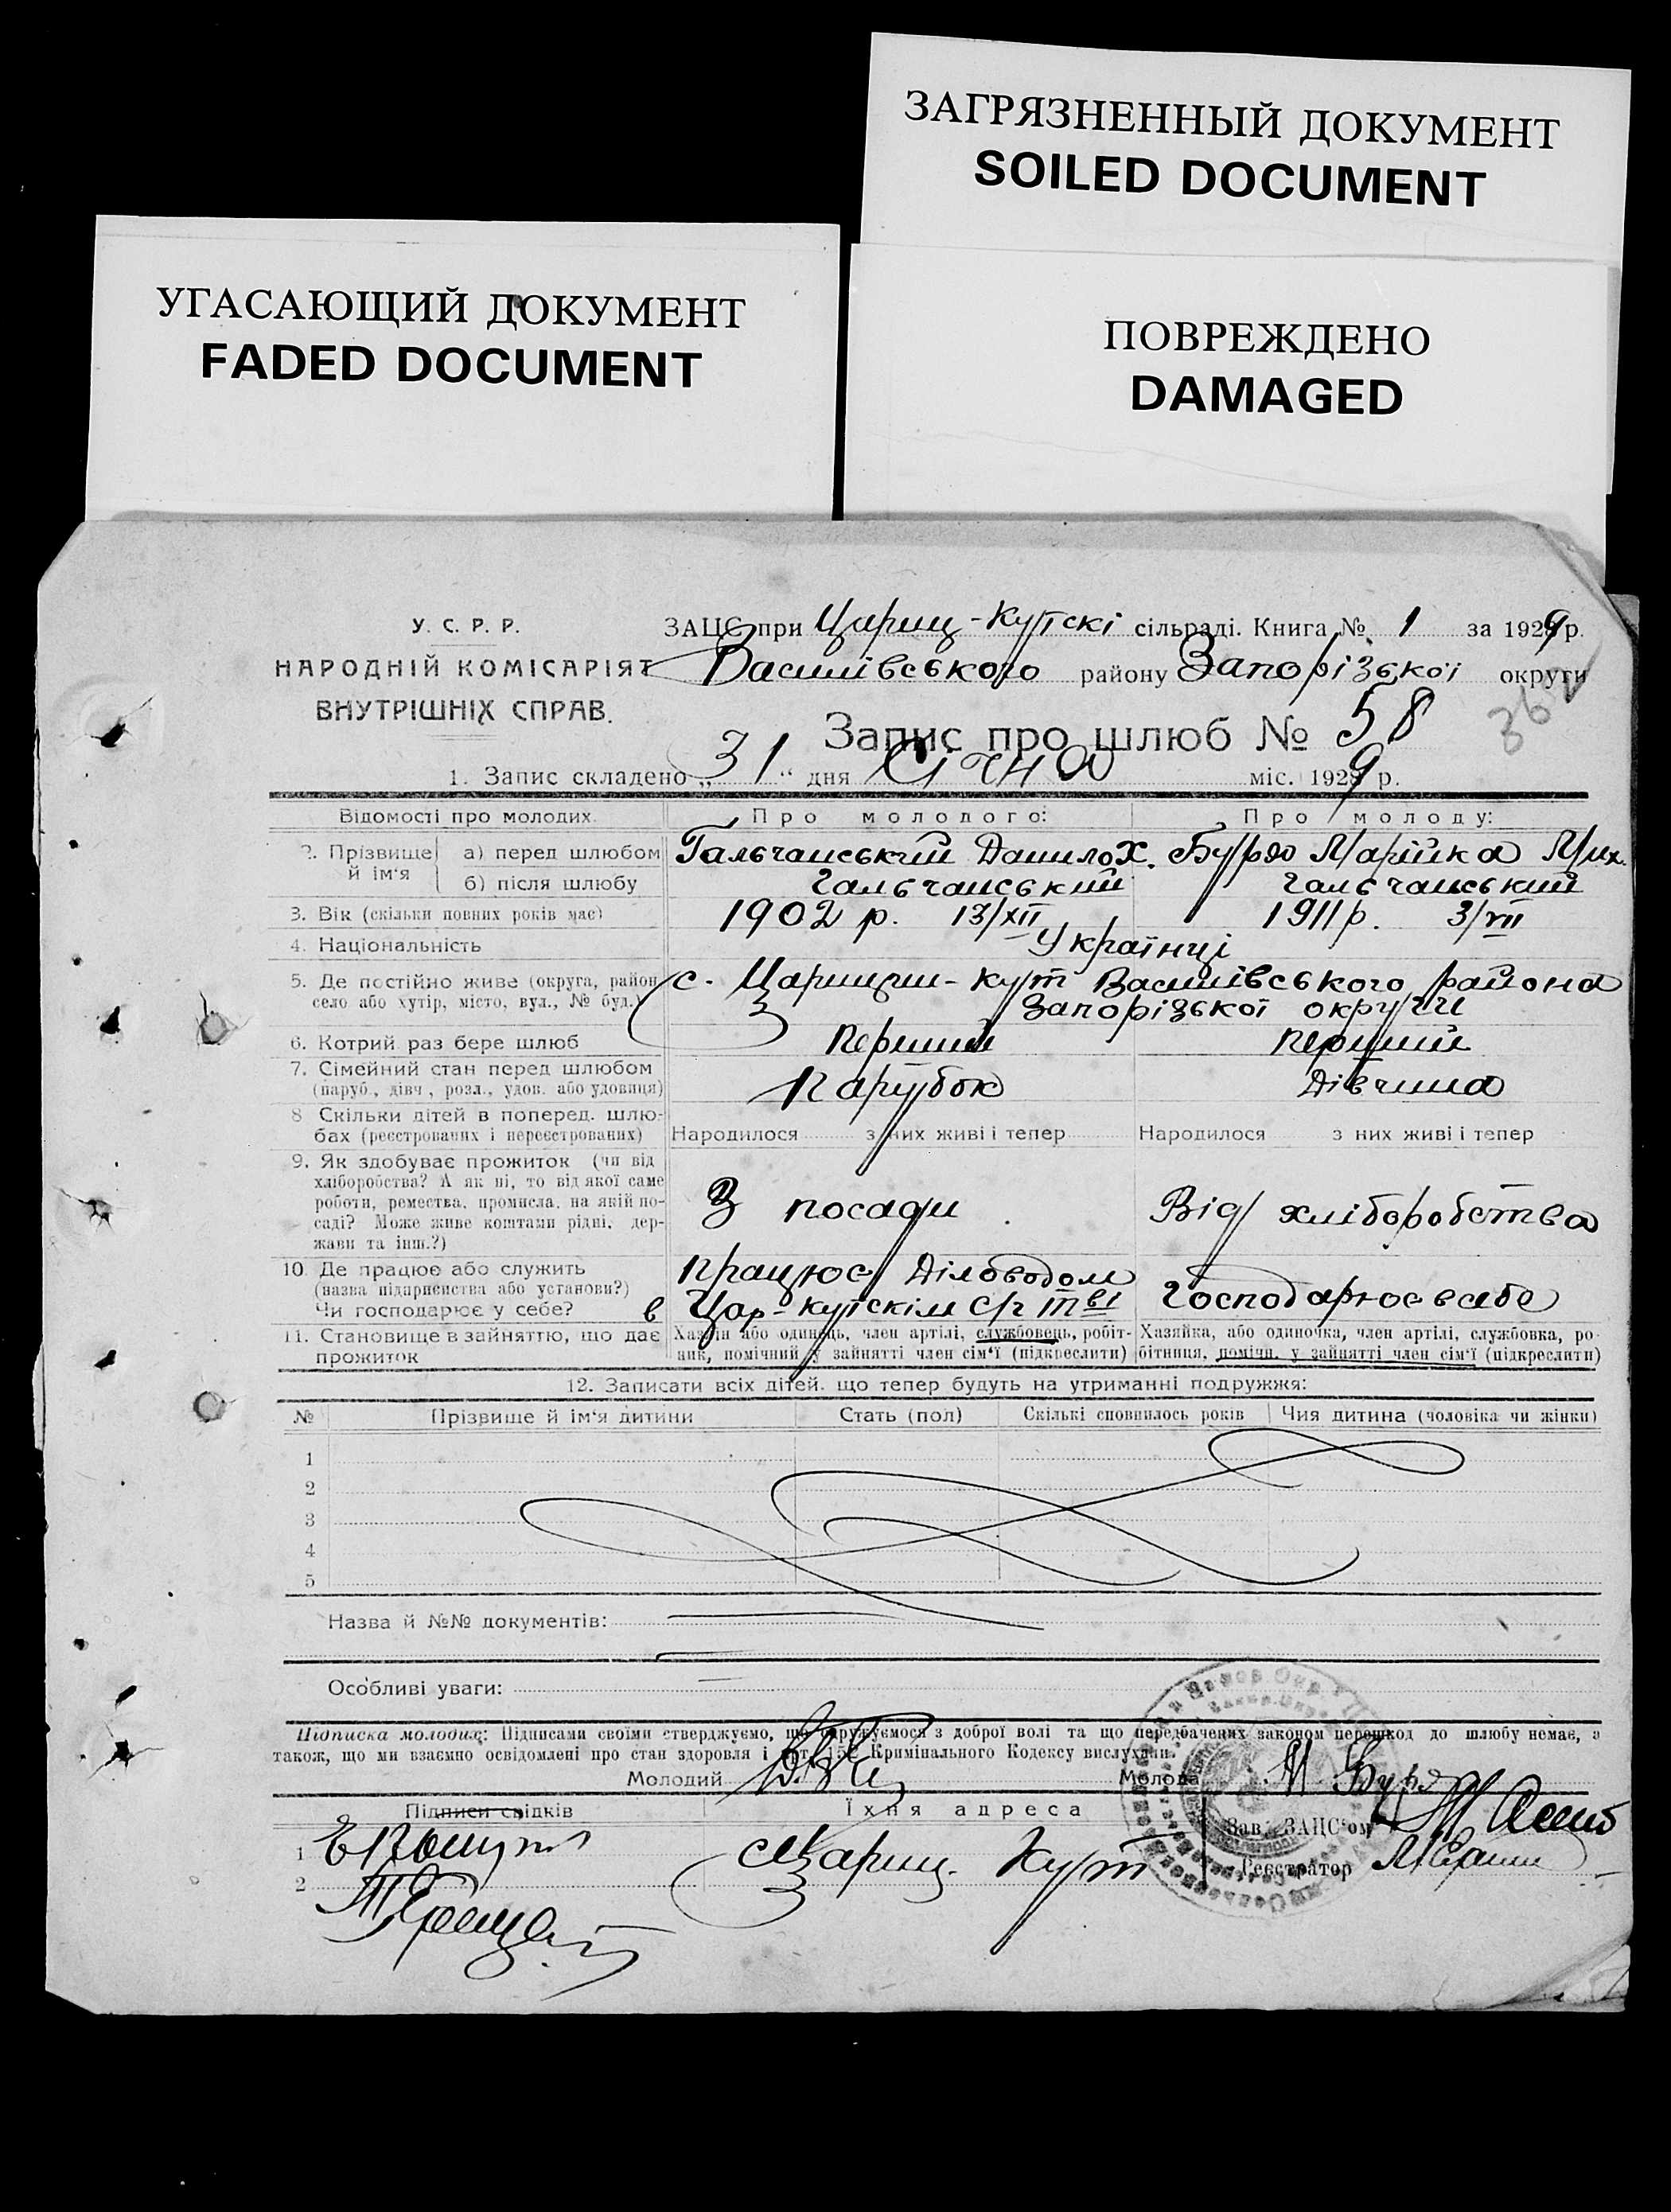 ЗАГРЯЗНЕННЫЙ ДОКУМЕНТ
SOILED DOCUMENT
УГАСАЮЩИЙ ДОКУМЕНТ
FADED DOCUMENT
ПОВРЕЖДЕНО
DAMAGED
У. С. Р. Р.
НАРОДНІЙ КОМІСАРІЯТ
ВНУТРІШНІХ СПРАВ.
ЗАЦС при Цариц-Кутскі сільраді. Книга № 1 за 1929 р.
Василівського району Запорізької округи
362
Запис про шлюб № 58
1. Запис складено „31“ дня Січня міс. 1929 р.
Відомості про молодих. Про молодого: Про молоду:
2. Прізвище й ім'я а) перед шлюбом Гальчанський Данило Х. Бурдо Марійка Мих.
б) після шлюбу Гальчанський Гальчанський
3. Вік (скільки повних років має) 1902 р. 13/XII 1911 р. 3/VII
4. Національність Українці
5. Де постійно живе (округа, район, село або хутір, місто, вул., № буд.) с. Царицин-Кут Василівського района
Запорізької округи
6. Котрий раз бере шлюб Перший перший
7. Сімейний стан перед шлюбом (паруб., дівч., розл., удов. або удовиця) Парубок Дівчина
8. Скільки дітей в поперед. шлюбах (реєстрованих і нереєстрованих) Народилося з них живі і тепер Народилося з них живі і тепер
9. Як здобуває прожиток (чи від
хліборобства? А як ні, то від якої саме
роботи, ремества, промисла, на якій по-
саді? Може живе коштами рідні, дер-
жави та інш.?)
З посади Від хліборобства
10. Де працює або служить
(назва підприємства або установи?)
Чи господарює у себе?
працює Діловодом
в Цар-Кутскім с/г т-ві Господарює в себе
11. Становище в зайняттю, що дає прожиток
Хазяїн або одинець, член артілі, службовець, робіт-
ник, помічний у зайнятті член сім'ї (підкреслити)
Хазяйка, або одиночка, член артілі, службовка, ро-
бітниця, помічн. у зайнятті член сім'ї (підкреслити)
12. Записати всіх дітей, що тепер будуть на утриманні подружжя:
№ Прізвище й ім'я дитини Стать (пол) Скількі сповнилось років Чия дитина (чоловіка чи жінки)
1
2
3
4
5
Назва й №№ документів:
Особливі уваги:
Підписка молодих: Підписами своїми стверджуємо, що одружуємося з доброї волі та що передбачених законом перешкод до шлюбу немає, а
також, що ми взаємно освідомлені про стан здоровля і арт. 15 Кримінального Кодексу вислухали.
Молодий Молода М Бурдо
Підписи свідків Їхня адреса Зав. ЗАЦС'ом
1 с Цариц. Кут Реєстратор
2